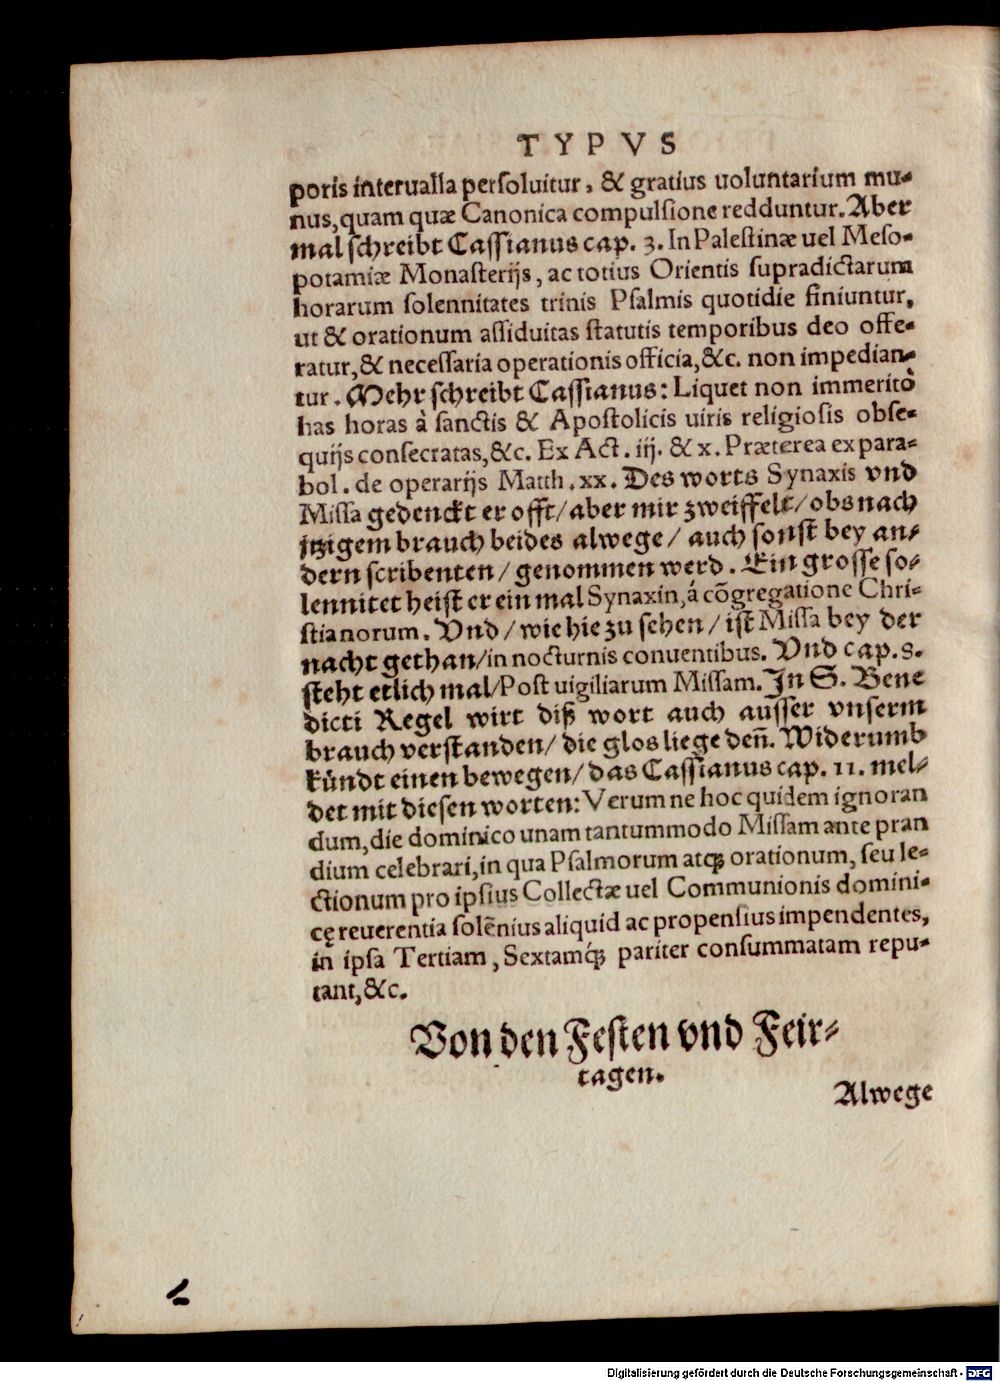 TYPVS
poris interualla persoluitur, & gratius uoluntarium mu-
nus, quam quæ Canonica compulsione redduntur. Aber
mal schreibt Cassianus cap. 3. In Palestinæ uel Meso-
potamiæ Monasterijs, ac totius Orientis supradictarum
horarum solennitates trinis Psalmis quotidie finiuntur,
ut & orationum assiduitas statutis temporibus deo offe-
ratur, & necessaria operationis officia, &c. non impedian-
tur. Mehr schreibt Cassianus: Liquet non immeritò
has horas à sanctis & Apostolicis uiris religiosis obse-
quijs consecratas, &c. Ex Act. iij. & x. Præterea ex para-
bol. de operarijs Matth. xx. Des worts Synaxis vnd
Missa gedenckt er offt/ aber mir zweiffelt/ obs nach
jtzigem brauch beides alwege/ auch sonst bey an-
dern scribenten/ genommen werd. Ein grosse so-
lennitet heist er ein mal Synaxin, á cõgregatione Chri-
stianorum. Vnd/ wie hie zu sehen/ ist Missa bey der
nacht gethan/ in nocturnis conuentibus. Vnd cap. 8.
steht etlich mal/ Post uigiliarum Missam. In S. Bene
dicti Regel wirt diß wort auch ausser vnserm
brauch verstanden/ die glos liege deñ. Widerumb
kündt einen bewegen/ das Cassianus cap. 11. mel-
det mit diesen worten: Verum ne hoc quidem ignoran
dum, die dominico unam tantummodo Missam ante pran
dium celebrari, in qua Psalmorum atq; orationum, seu le-
ctionum pro ipsius Collectæ uel Communionis domini-
cę reuerentia solẽnius aliquid ac propensius impendentes,
in ipsa Tertiam, Sextamq́; pariter consummatam repu-
tant, &c.
Von den Festen vnd Feir-
tagen.
Alwege
Digitalisierung gefördert durch die Deutsche Forschungsgemeinschaft - DFG